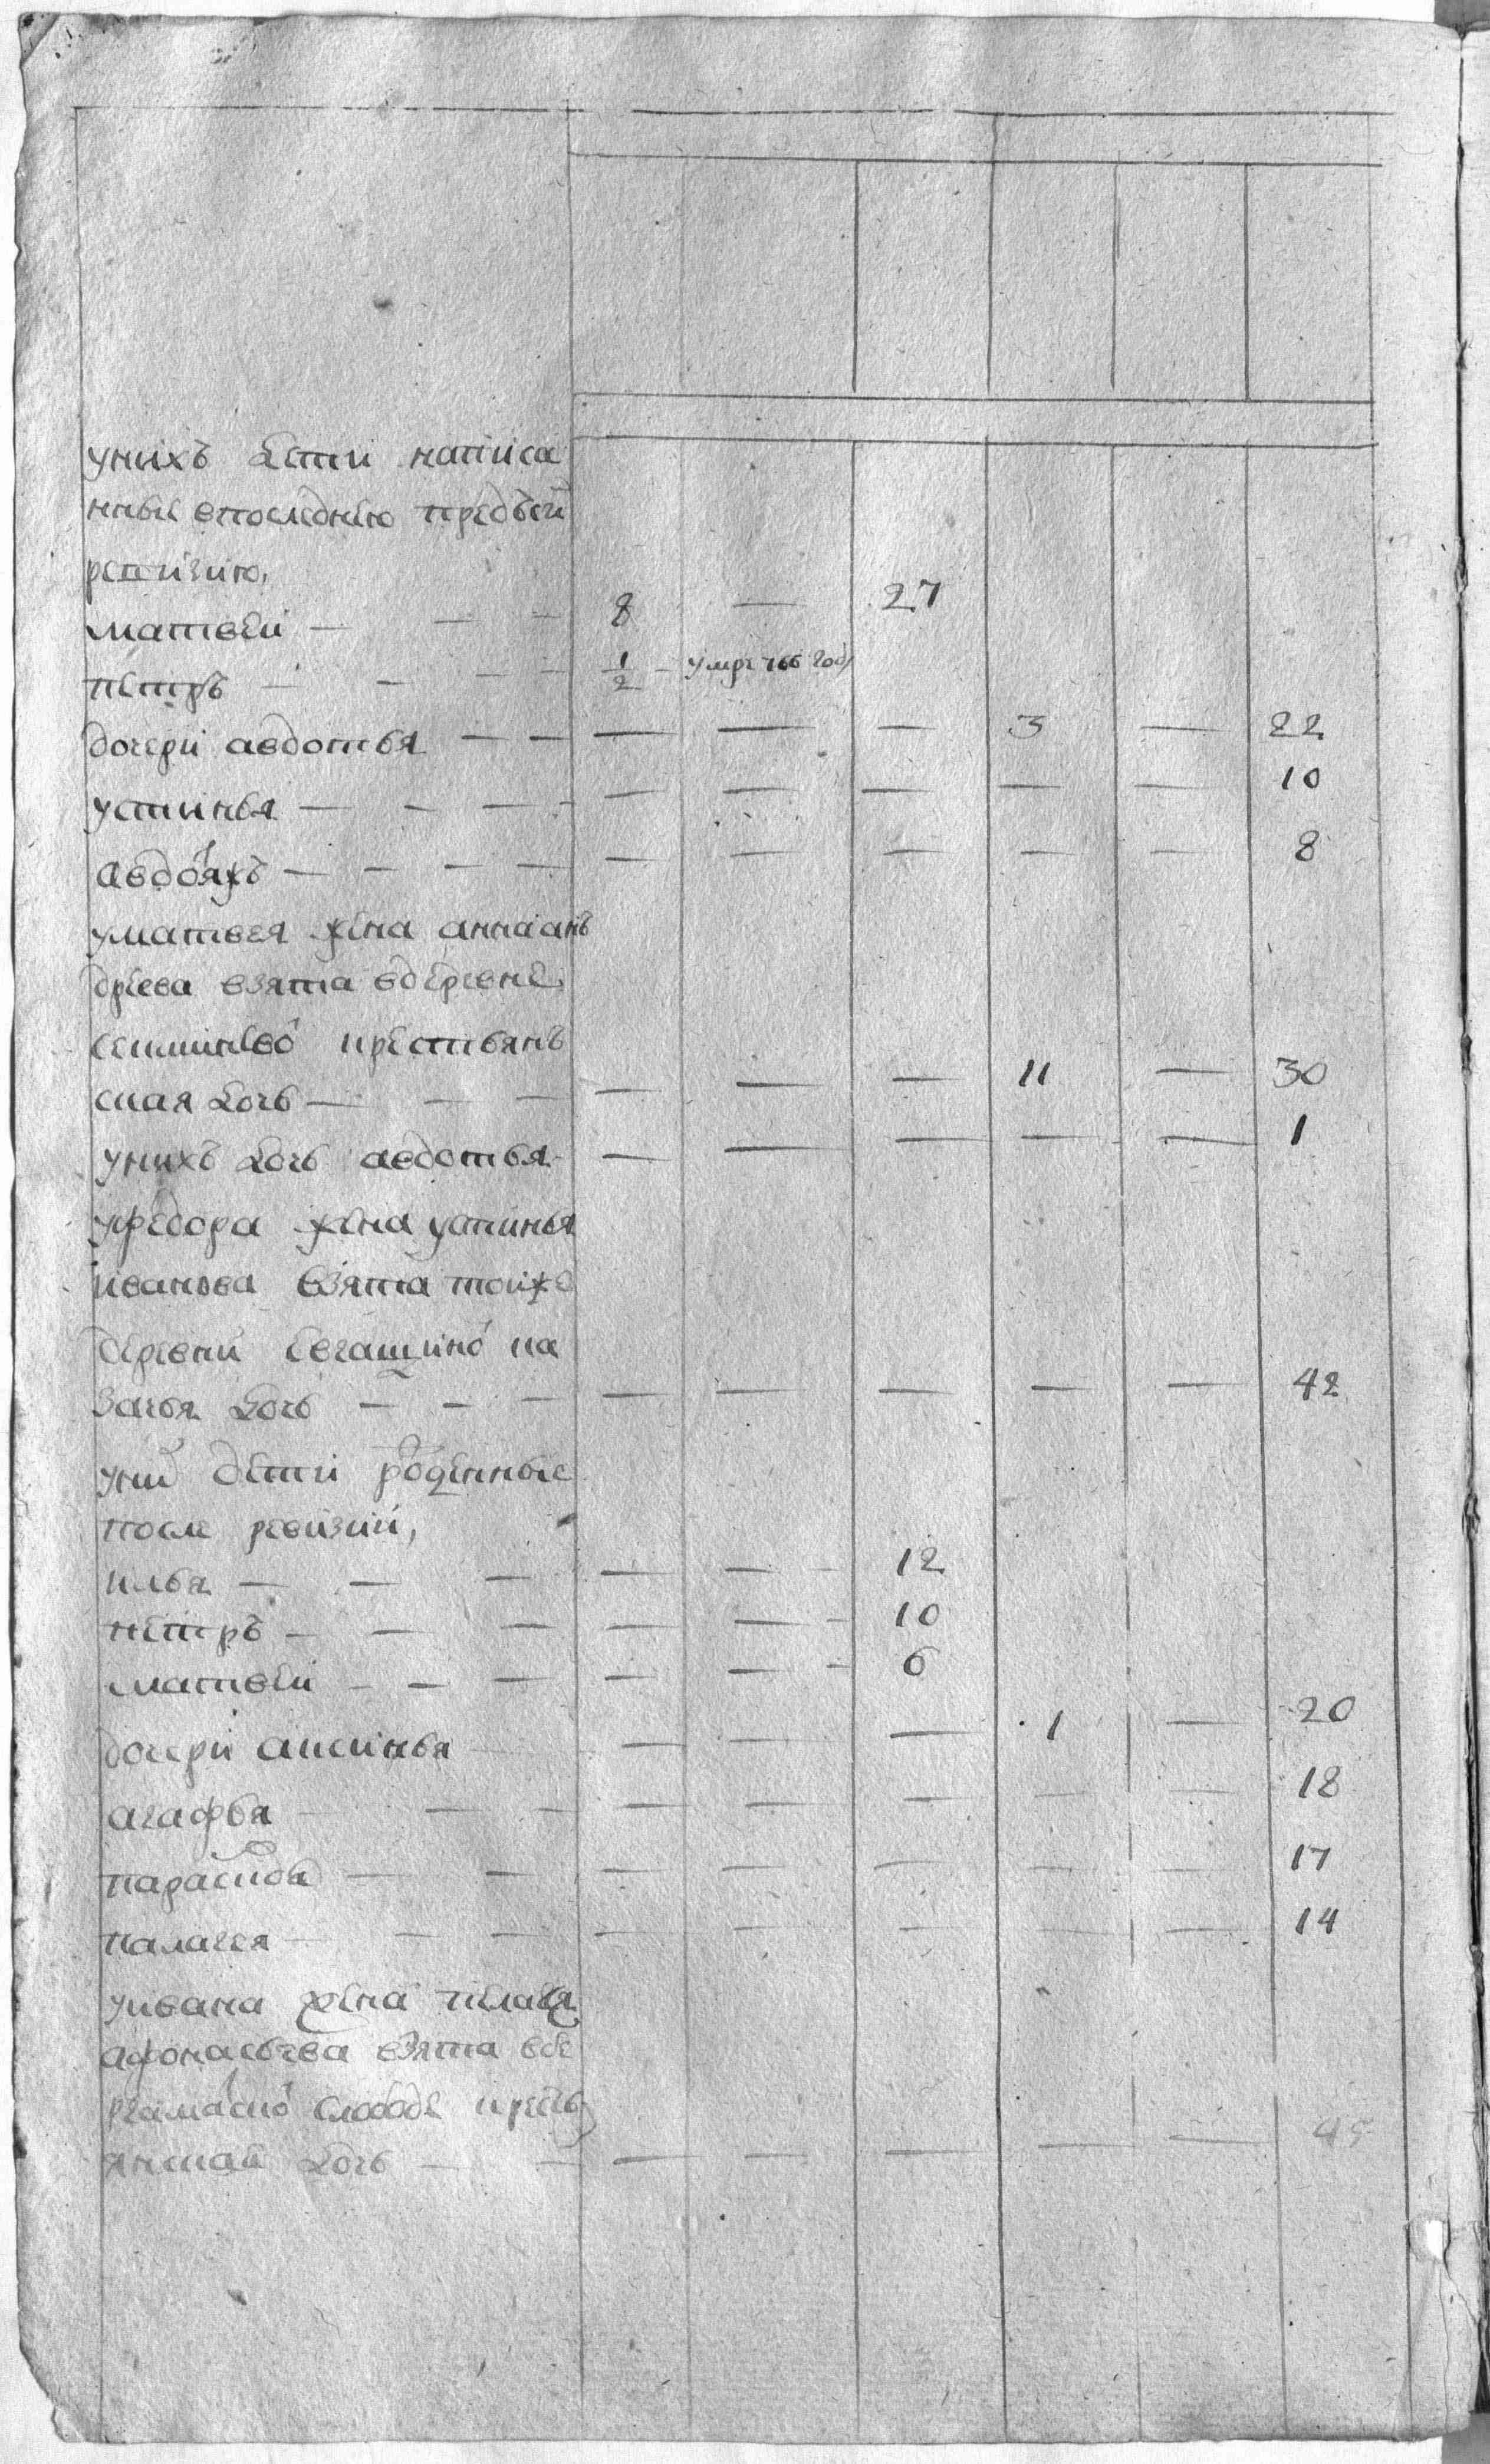 унихъ дети написа
нныe впоследнѣю предъсей
ревизию,
матвеи — — — 8 — 27
петръ — — — — 1/2 — умре 766 году
дочери авдотья — — — — — 3 — 22
устинья — — — — — — — — — 10
авдотья — — — — — — — — — 8
уматвея жена анна анъ
дреева взята вдеревне
крестьянъ
ская дочь — — — — — — 11 — 30
унихъ дочь авдотья — — — — — 1
уфедора жена устинья
иванова взята тойже
деревни ка
зачья дочь — — — — — — — — 42
уних дети роженные
после ревизии,
илья — — — — — 12
петръ — — — — — 10
матвеи — — — — — 6
дочери аксинья — — — — 1 — 20
агафья — — — — — — — — 18
парасковья — — — — — — — 17
палагея — — — — — — — — 14
уивана жена пелагея
афонасьева взята вбе
слободе кресть
янская дочь — — — — — — — 45